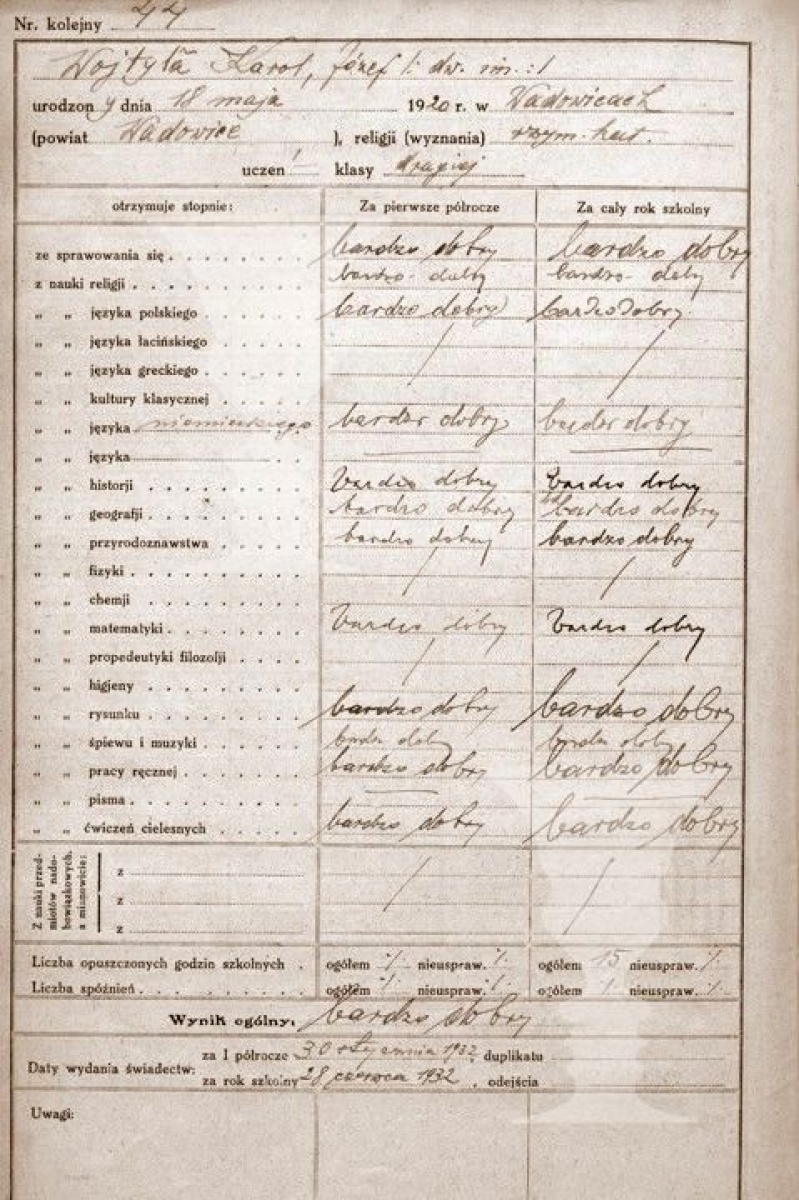 Nr. kolejny 44
Wojtyła Karol, Józef /: dw. im. :/
urodzony dnia 18 maja 1920 r. w Wadowicach
(powiat Wadowice ), religii (wyznania) rzym. kat.
uczeń klasy drugiej
otrzymuje stopnie: Za pierwsze półrocze Za cały rok szkolny
ze sprawowania się . . . . . . . bardzo dobry bardzo dobry
z nauki religji . . . . . . . . . bardzo dobry bardzo dobry
„ „ języka polskiego . . . . . bardzo dobry bardzo dobry
„ „ języka łacińskiego . . . .
„ „ języka greckiego . . . . . / /
„ „ kultury klasycznej . . . .
„ „ języka niemieckiego bardzo dobry bardzo dobry
„ „ języka . . —— ——
„ „ historji . . . . . . . . bardzo dobry bardzo dobry
„ „ geografji . . . . . . . . bardzo dobry bardzo dobry
„ „ przyrodoznawstwa . . . . bardzo dobry bardzo dobry
„ „ fizyki . . . . . . . . .
„ „ chemji . . . . . . . . / /
„ „ matematyki . . . . . . . bardzo dobry bardzo dobry
„ „ propedeutyki filozofji . . . .
„ „ higjeny . . . . . . . . / /
„ „ rysunku . . . . . . . . bardzo dobry bardzo dobry
„ „ śpiewu i muzyki . . . . . bardzo dobry bardzo dobry
„ „ pracy ręcznej . . . . . . bardzo dobry bardzo dobry
„ „ pisma . . . . . . . . . —— ——
„ „ ćwiczeń cielesnych . . . . . bardzo dobry bardzo dobry
Z nauki przed-
miotów nado-
bowiązkowych,
a mianowicie:
z
z / /
z
Liczba opuszczonych godzin szkolnych . ogółem ·/· nieuspraw. ·/· ogółem 15 nieuspraw. ·/·
Liczba spóźnień . . . . . . . . . ogółem ·/· nieuspraw. ·/· ogółem / nieuspraw. ·/·
Wynik ogólny: bardzo dobry
Daty wydania świadectw: za I półrocze 30 stycznia 1932 duplikatu
za rok szkolny 28 czerwca 1932 , odejścia
Uwagi: